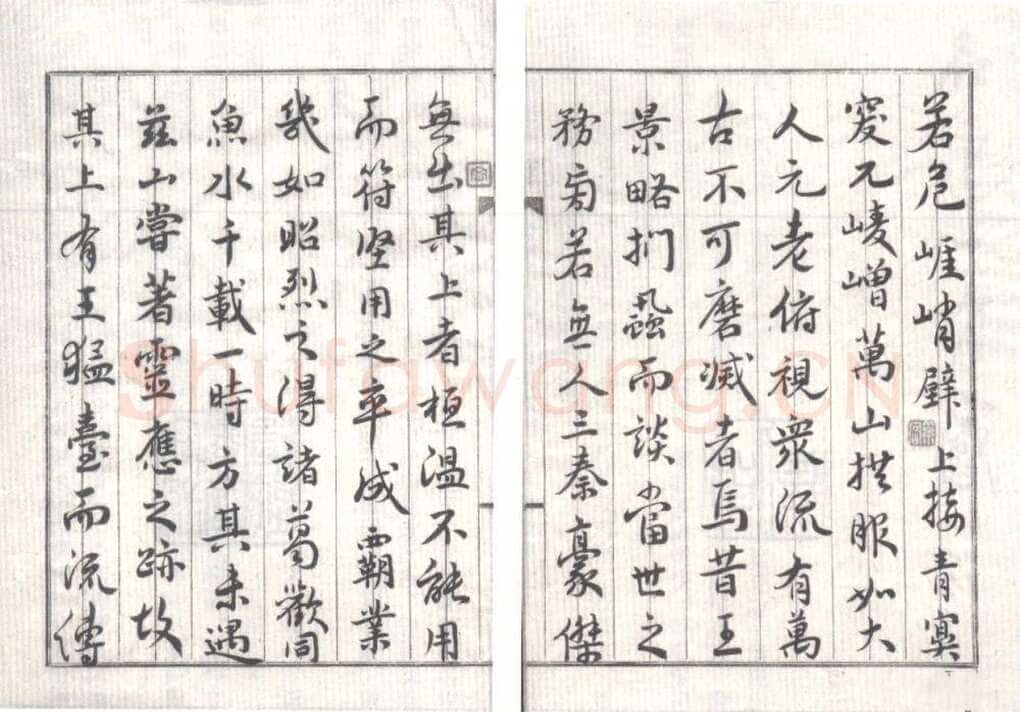 若危崕峭壁上接青冥
突兀崚嶒萬山拱服如大
人元老俯視衆流有萬
古不可磨滅者焉昔王
景略捫蝨而談當世之
務旁若無人三秦豪傑
無出其上者桓温不能用
而符堅用之卒成覇業
哉如昭烈之得諸葛歡同
魚水千載一時方其未遇
茲山嘗著靈應之跡故
其上有王猛臺而流傳
Shufawang.CN